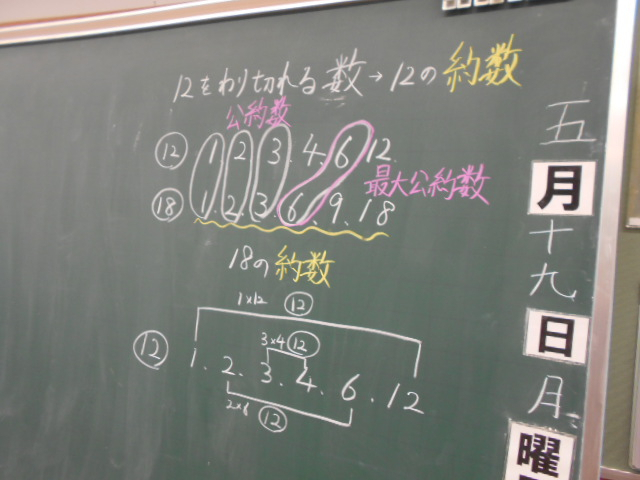 12をわり切れる数→12の約数
公約数
⑫ 1. 2. 3. 4. 6. 12.
最大公約数
⑱ 1. 2. 3. 6. 9. 18
18の約数
1×12 ⑫
3×4 ⑫
⑫ 1. 2. 3. 4. 6. 12
2×6 ⑫
五月十九日月曜